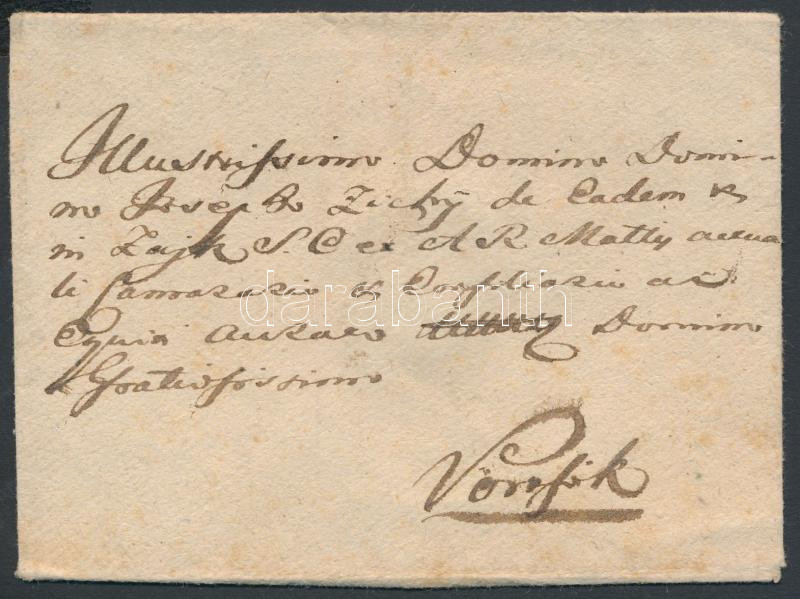 Illustrissimo Domino Domi-
no Josepho Zichÿ de Eadem &
in Zajk S. C et A R Mattis actua
li Camerario & Consiliario ac
Equiti Aurato Domino
Gratiosissimo
darabanth